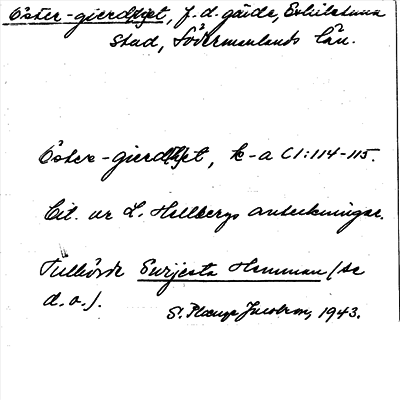 Öster-gierdhet, f.d. gärde, Eskilstuna
stad, Södermanlands län.
Öster-gierdhet, k-a C1:114-115.
Cit. ur L. Hellbergs anteckningar.
Tillhörde Surjesta Hemman (se
d.o.).
S. Jacobson, 1943.